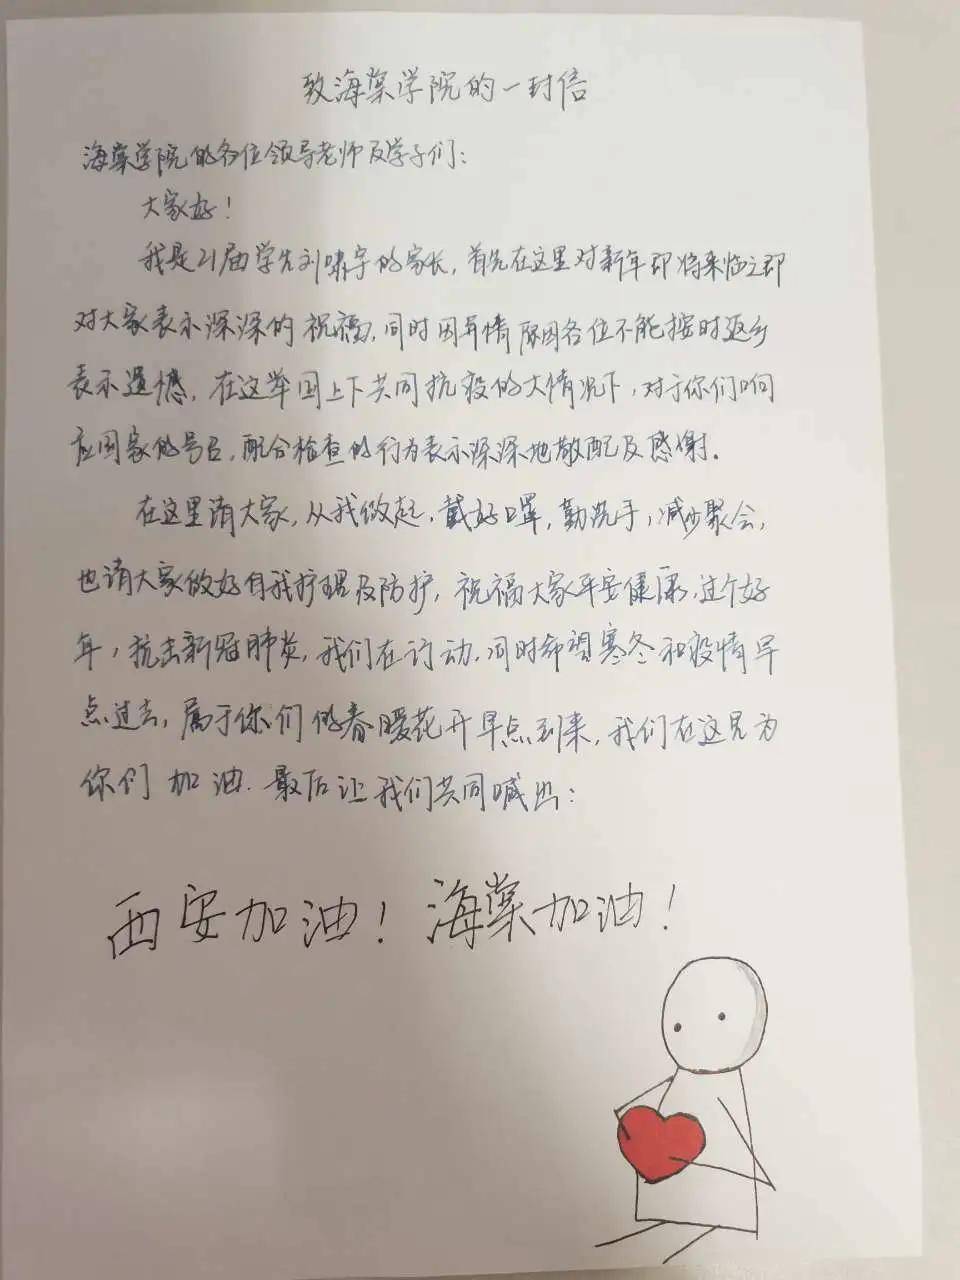 致海棠学院的一封信
海棠学院的各位领导老师及学子们：
大家好！
我是21届学生刘啸宇的家长，首先在这里对新年即将来临之即
对大家表示深深的祝福，同时因疫情原因各位不能按时返乡
表示遗憾，在这举国上下共同抗疫的大情况下，对于你们响
应国家的号召，配合检查的行为表示深深地敬配及感谢．
在这里请大家，从我做起，戴好口罩，勤洗手，减少聚会，
也请大家做好自我护理及防护，祝福大家平安健康，过个好
年，抗击新冠肺炎，我们在行动，同时希望寒冬和疫情早
点过去，属于你们的春暖花开早点到来，我们在这儿为
你们加油．最后让我们共同喊出：
西安加油！海棠加油！